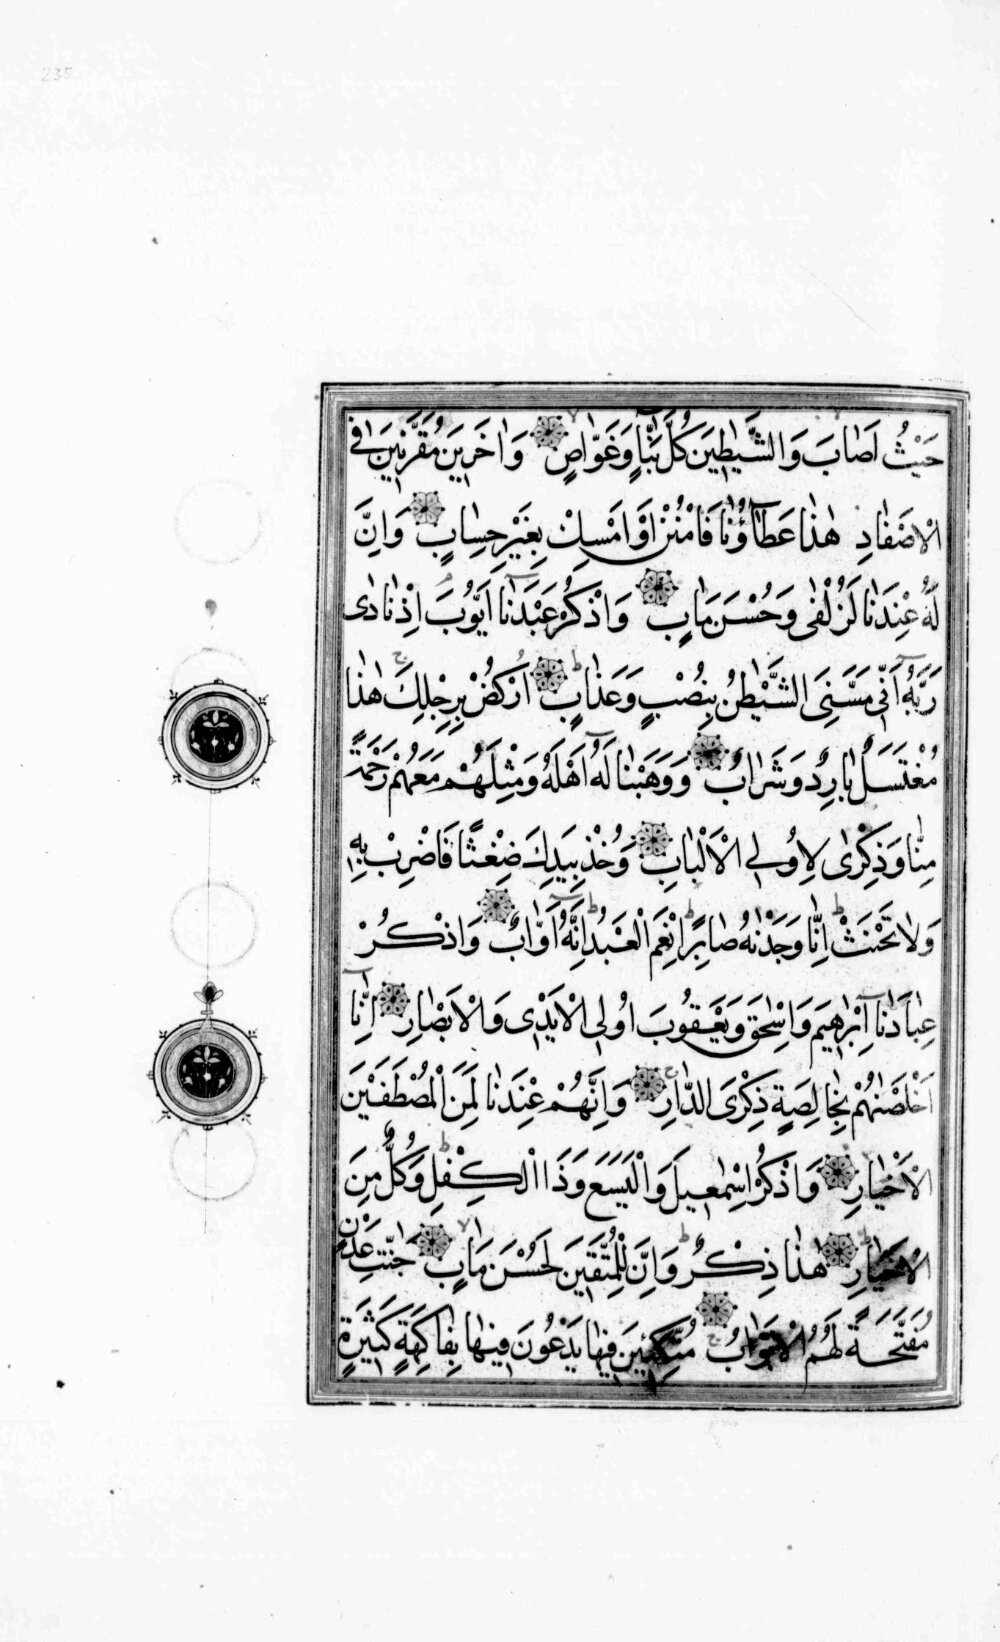 235
حَيْثُ اَصَابَ وَالشَّيٰطِينَ كُلَّ بَنَّآءٍ وَغَوَّاصٍ وَاٰخَرِينَ مُقَرَّنِينَ فِى
الْاَصْفَادِ هٰذَا عَطَآؤُنَا فَامْنُنْ اَوْ اَمْسِكْ بِغَيْرِ حِسَابٍ وَاِنَّ
لَهُ عِنْدَنَا لَزُلْفٰى وَحُسْنَ مَاٰبٍ وَاذْكُرْ عَبْدَنَآ اَيُّوبَ اِذْ نَادٰى
رَبَّهُ اَنِّى مَسَّنِىَ الشَّيْطٰنُ بِنُصْبٍ وَعَذَابٍ اُرْكُضْ بِرِجْلِكَ هٰذَا
مُغْتَسَلٌ بَارِدٌ وَشَرَابٌ وَوَهَبْنَا لَهُٓ اَهْلَهُ وَمِثْلَهُمْ مَعَهُمْ رَحْمَةً
مِنَّا وَذِكْرٰى لِاُولِى الْاَلْبَابِ وَخُذْ بِيَدِكَ ضِغْثًا فَاضْرِبْ بِهِ
وَلَا تَحْنَثْ اِنَّا وَجَدْنٰهُ صَابِرًا نِعْمَ الْعَبْدُ اِنَّهُٓ اَوَّابٌ وَاذْكُرْ
عِبَادَنَآ اِبْرٰهِيمَ وَاِسْحٰقَ وَيَعْقُوبَ اُولِى الْاَيْدِى وَالْاَبْصَارِ اِنَّآ
اَخْلَصْنٰهُمْ بِخَالِصَةٍ ذِكْرَى الدَّارِ وَاِنَّهُمْ عِنْدَنَا لَمِنَ الْمُصْطَفَيْنَ
الْاَخْيَارِ وَاذْكُرْ اِسْمٰعِيلَ وَالْيَسَعَ وَذَا الْكِفْلِ وَكُلٌّ مِنَ
الْاَخْيَارِ هٰذَا ذِكْرٌ وَاِنَّ لِلْمُتَّقِينَ لَحُسْنَ مَاٰبٍ جَنّٰتِ عَدْنٍ
مُفَتَّحَةً لَهُمُ الْاَبْوَابُ مُتَّكِئِينَ فِيهَا يَدْعُونَ فِيهَا بِفَاكِهَةٍ كَثِيرَةٍ